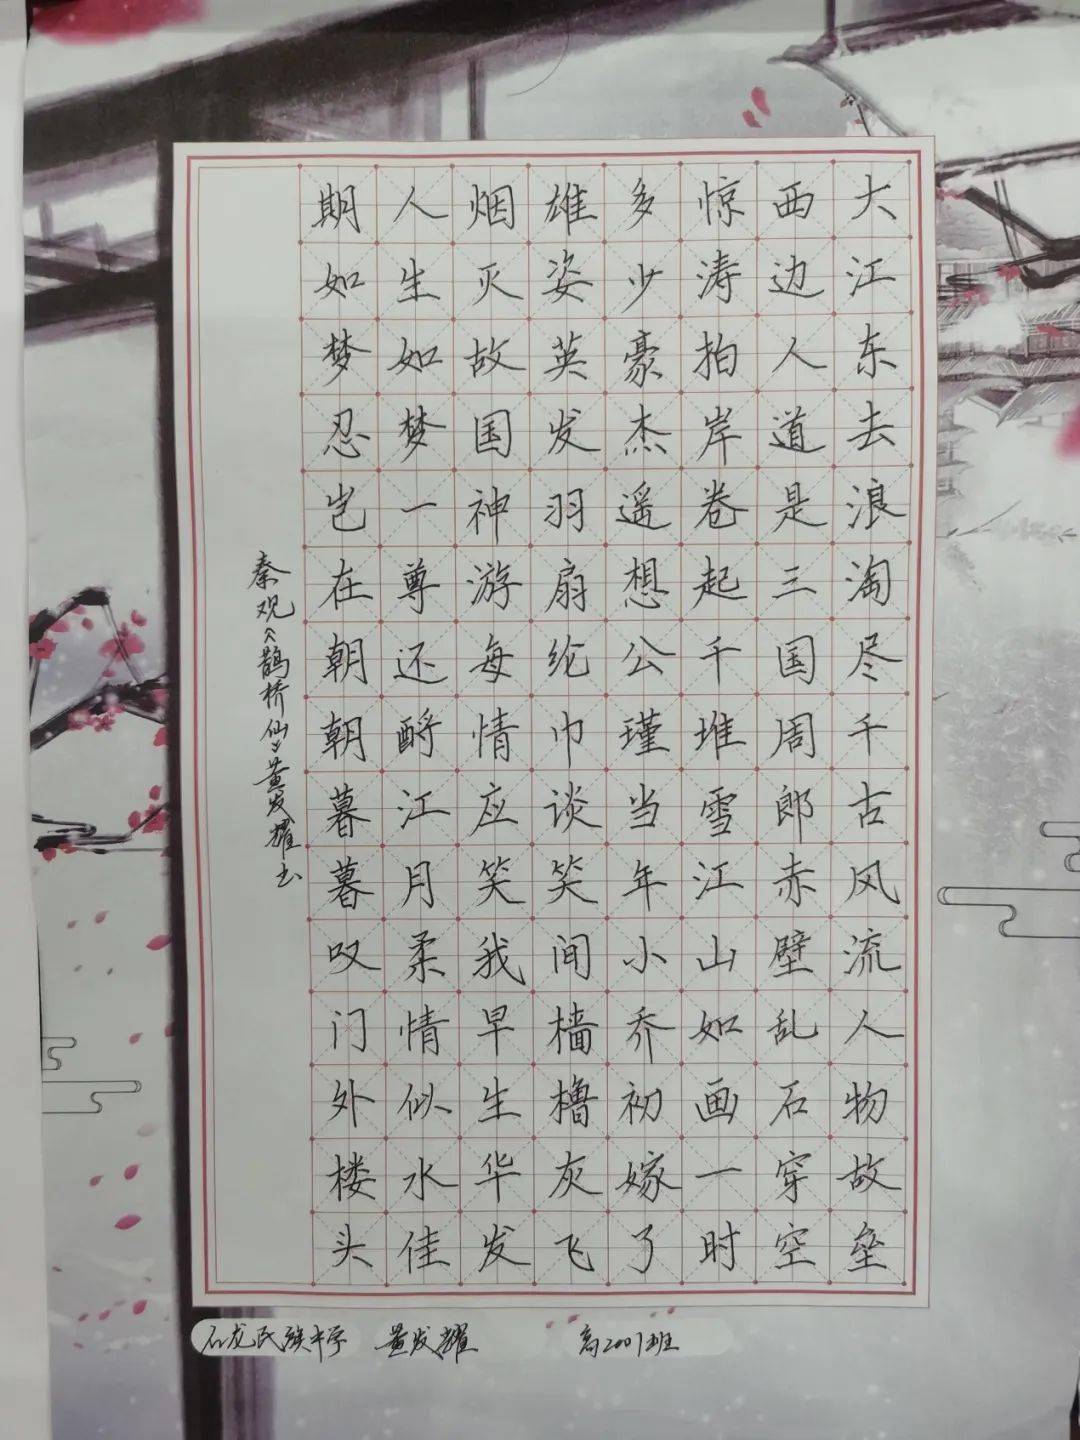 大江东去浪淘尽千古风流人物故垒
西边人道是三国周郎赤壁乱石穿空
惊涛拍岸卷起千堆雪江山如画一时
多少豪杰遥想公瑾当年小乔初嫁了
雄姿英发羽扇纶巾谈笑间樯橹灰飞
烟灭故国神游每情应笑我早生华发
人生如梦一尊还酹江月柔情似水佳
期如梦忍岂在朝朝暮暮叹门外楼头
秦观《鹊桥仙》黄发耀书
石龙民族中学 黄发耀 高2001班